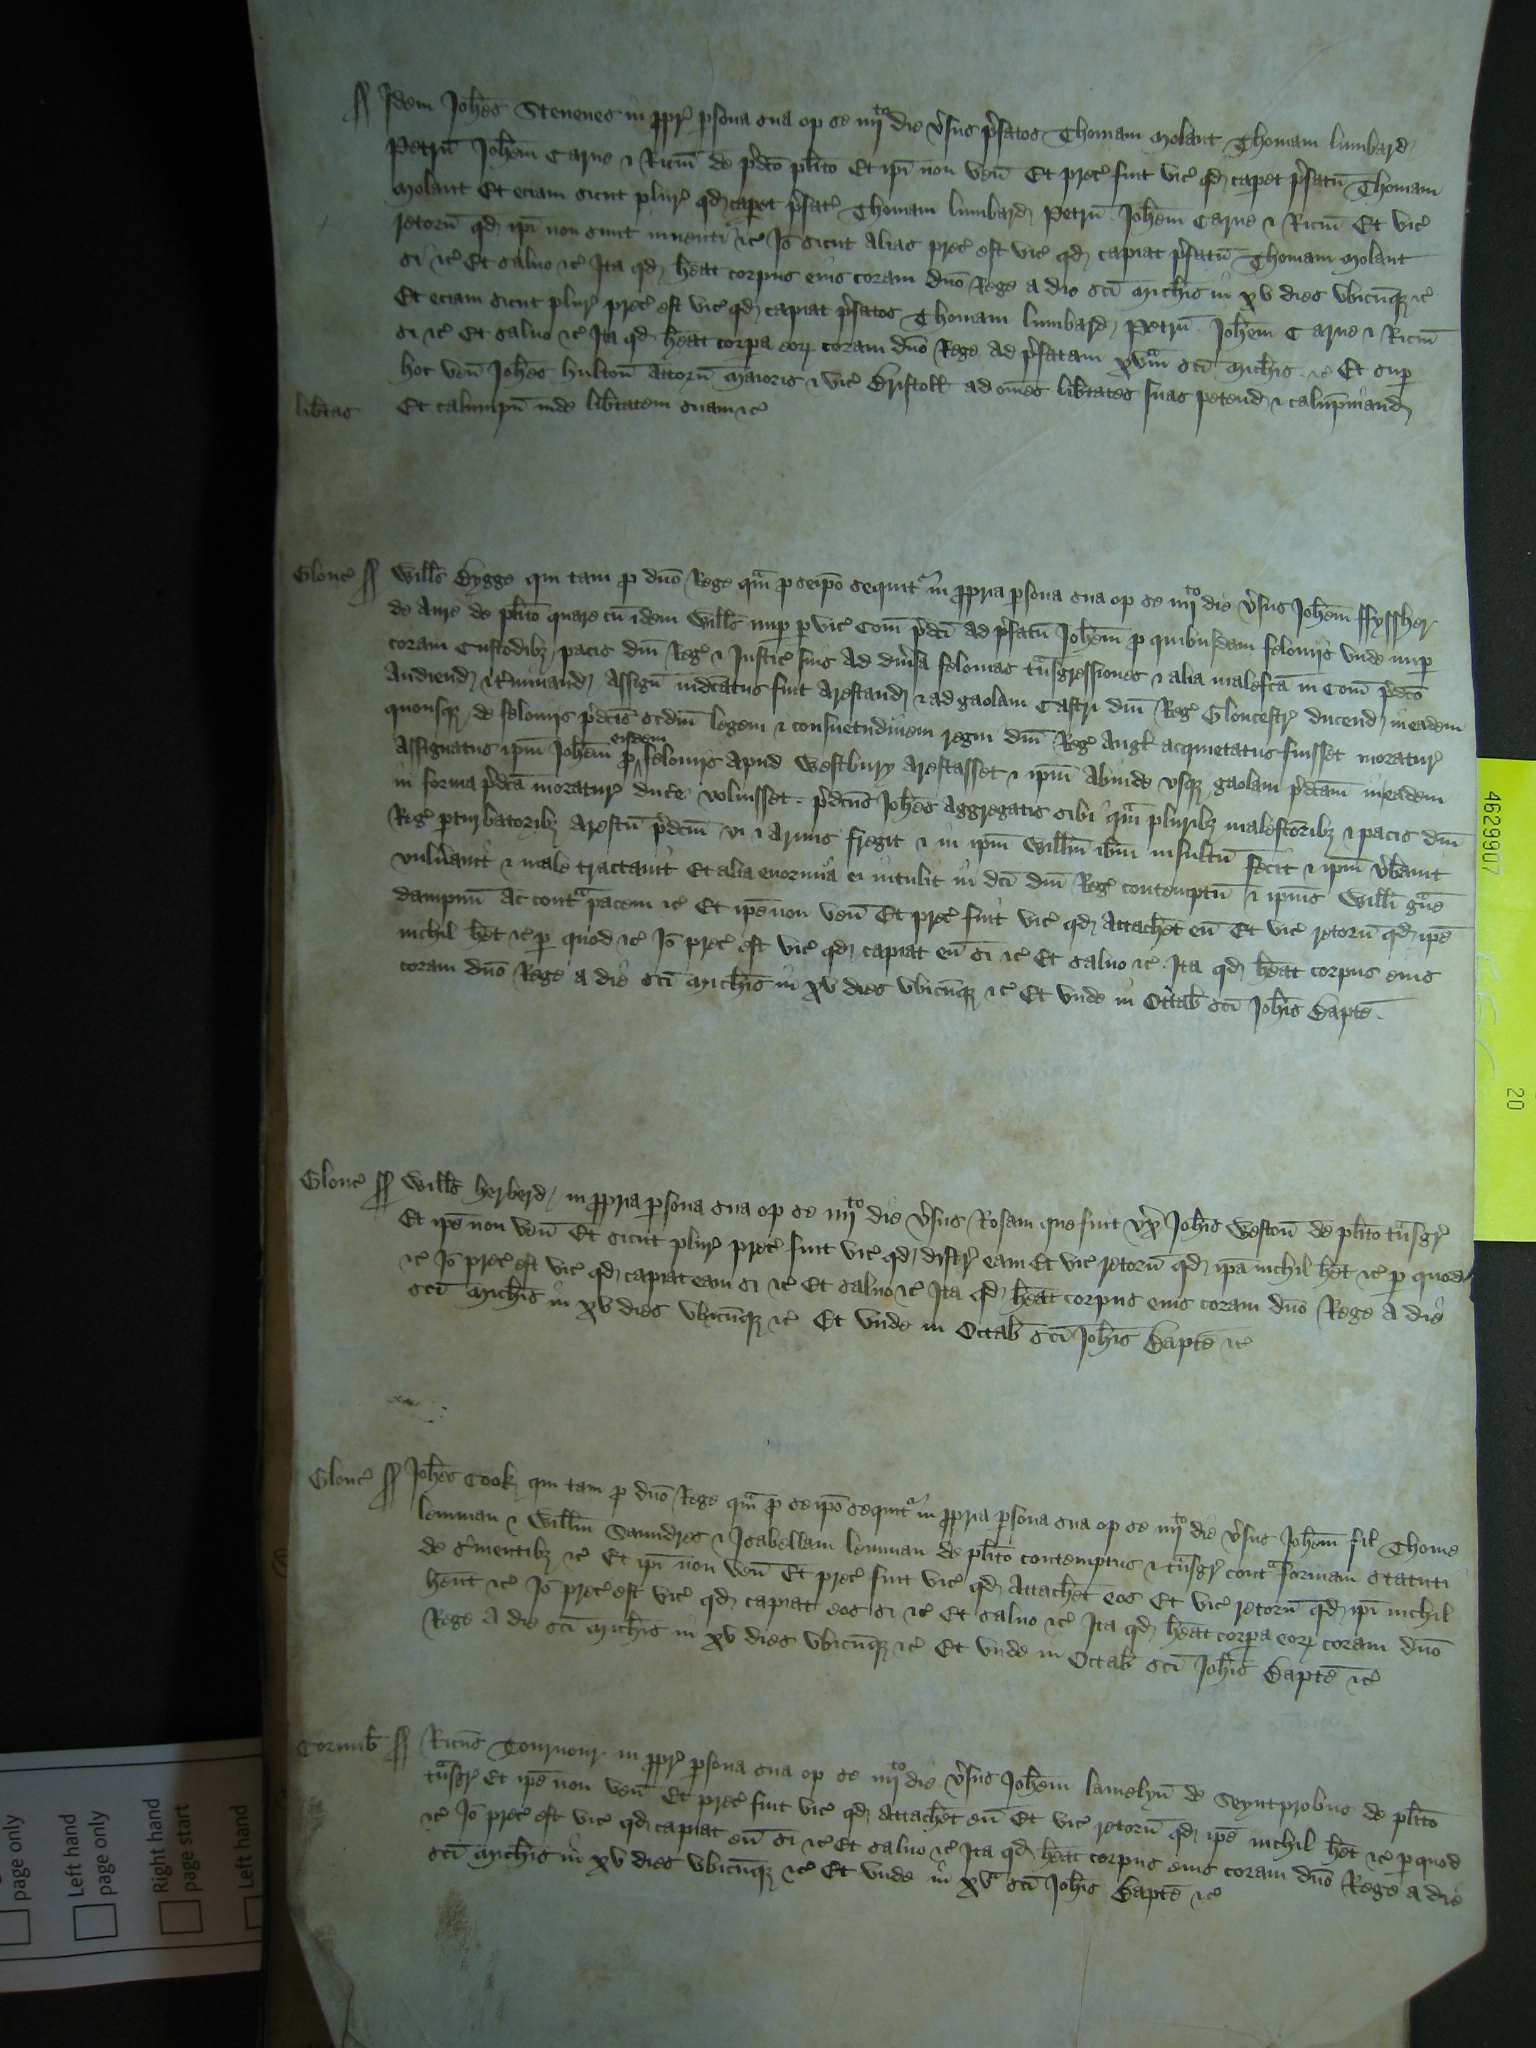 Idem Joh̄es Steuenes in pp̱r̄ p̱sona sua op se iiijto die v̄sus p̄fatos Thomam Molant Thomam lumbard
Petrū Joh̄em Carue ⁊ Ric̄m de p̄dc̄o pl̄ito Et ip̄i non ven̄ Et prec̄ fuit vic̄ qd̄ capet p̄fatū Thomam
Molant Et eciam sicut plur̄ qd̄ capet p̄fat̄ Thomam lumbard Petrū Joh̄em Carue ⁊ Ric̄m Et vic̄
retorn̄ qd̄ ip̄i non sunt inuenti ⁊c̄ Jō sicut alias prec̄ est vic̄ qd̄ capiat p̄fatū Thomam Molant
si ⁊c̄ Et saluo ⁊c̄ Ita qd̄ h̄eat corpus eius coram dn̄o Rege a die sc̄i Mich̄is in xv dies vbicūqꝫ ⁊c̄
Et eciam sicut plur̄ prec̄ est vic̄ qd̄ capiat p̄fatos Thomam lumbard Petrū Joh̄em Carue ⁊ Ric̄m
si ⁊c̄ Et saluo ⁊c̄ Ita qd̄ h̄eat corp̱a eoꝝ coram dn̄o Rege ad p̄fatam xvam sc̄i Mich̄is ⁊c̄ Et sup̱
hoc ven̄ Joh̄es hulton̄ attorn̄ Maioris ⁊ vic̄ Bristoll̄ ad om̄es lib̄tates suas petend ⁊ calūpniand
lib̄tas Et calumpn̄ inde lib̄tatem suam ⁊c̄
Glouc̄ Will̄s Bygge qui tam p̱ dn̄o Rege qam p̱ seip̄o sequitr in pp̱ria p̱sona sua op se iiijto die v̄sus Joh̄em ffyssher
de Aure de pl̄ito quare cū idem Will̄s nup̱ p̱ vic̄ Com̄ p̄dc̄i ad p̄fatū Joh̄em p̱ quibusdam feloniis vnde nup̱
coram Custodibꝫ pacis dn̄i Reḡ ⁊ Justic̄ suis ad diūsa felonias tansgressiones ⁊ alia malefc̄a in Com̄ p̄dc̄o
audiend ⁊ t̄minand assign̄ indc̄atus fuit arestand ⁊ ad gaolam Castri dn̄i Reḡ Gloucestr̄ ducend in eadem
quousqꝫ de feloniis p̄dc̄is sc̄dm legem ⁊ consuetudinem regni dn̄i Reḡ Angl̄ acquietatus fuisset moratur̄
assignatus ip̄m Joh̄em p̱ eisdem feloniis apud Westbury arestasset ⁊ ip̄m abinde vsqꝫ gaolam p̄dc̄am in eadem
in forma p̄dc̄a moratur̄ duc̄e voluisset p̄dc̄us Joh̄es aggregatis sibi qam pluribꝫ malefc̄oribꝫ ⁊ pacis dn̄i
Reḡ p̱turbatoribꝫ arestū p̄dc̄m vi ⁊ armis fregit ⁊ in ip̄m Will̄m ib̄m insultū fecit ⁊ ip̄m v̄bauit
vuln̄auit ⁊ male tractauit Et alia enormia ei intulit in dc̄i dn̄i Reḡ contemptū ⁊ ip̄ius Will̄i gaue
dampnū ac conta pacem ⁊c̄ Et ip̄e non ven̄ Et prec̄ fuit vic̄ qd̄ attach̄et eū Et vic̄ retorn̄ qd̄ ip̄e
nichil h̄et ⁊c̄ p̱ quod ⁊c̄ Jō prec̄ est vic̄ qd̄ capiat eū si ⁊c̄ Et saluo ⁊c̄ Ita qd̄ h̄eat corpus eius
coram dn̄o Rege a die sc̄i Mich̄is in xv dies vbicūqꝫ ⁊c̄ Et vnde in Octab̄ sc̄i Joh̄is Bapte
Glouc̄ Will̄s herberd in pp̱ria p̱sona sua op se iiijto die v̄sus Rosam que fuit vx̄ Joh̄is Weston̄ de pl̄ito tansgr̄
Et ip̄e non ven̄ Et sicut plur̄ prec̄ fuit vic̄ qd̄ distr̄ eam Et vic̄ retorn̄ qd̄ ip̄a nichil h̄et ⁊c̄ p̱ quod
⁊c̄ Jō prec̄ est vic̄ qd̄ capiat eam si ⁊c̄ Et saluo ⁊c̄ Ita qd̄ h̄eat corpus eius coram dn̄o Rege a die
sc̄i Mich̄is in xv dies vbicūqꝫ ⁊c̄ Et vnde in Octab̄ sc̄i Joh̄is Bapte ⁊c̄
Glouc̄ Joh̄es Cook qui tam p̱ dn̄o Rege qam p̱ se ip̄o sequitr in pp̱ria p̱sona sua op se iiijto die v̄sus Joh̄em fil̄ Thome
lemman ⁊ Will̄m Saundres ⁊ Isabellam lemman de pl̄ito contemptus ⁊ tansgr̄ conta formam statuti
de s̄uientibꝫ ⁊c̄ Et ip̄i non ven̄ Et prec̄ fuit vic̄ qd̄ attach̄et eos Et vic̄ retorn̄ qd̄ ip̄i nichil
h̄ent ⁊c̄ Jō prec̄ est vic̄ qd̄ capiat eos si ⁊c̄ Et saluo ⁊c̄ Ita qd̄ h̄eat corp̱a eoꝝ coram dn̄o
Rege a die sc̄i Mich̄is in xv dies vbicūqꝫ ⁊c̄ Et vnde in Octab̄ sc̄i Joh̄is Bapte ⁊c̄
Cornub̄ Ric̄us Tournour in pp̱r̄ p̱sona sua op se iiijto die v̄sus Joh̄em lamelyn̄ de Seyntprobus de pl̄ito
tansgr̄ Et ip̄e non ven̄ Et prec̄ fuit vic̄ qd̄ attach̄et eū Et vic̄ retorn̄ qd̄ ip̄e nichil h̄et ⁊c̄ p̱ quod
⁊c̄ Jō prec̄ est vic̄ qd̄ capiat eū si ⁊c̄ Et saluo ⁊c̄ Ita qd̄ h̄eat corpus eius coram dn̄o Rege a die
sc̄i Mich̄is in xv dies vbicūqꝫ ⁊c̄ Et vnde in xva sc̄i Joh̄is Bapte ⁊c̄
462907
20
page only
Left hand
page only
Right hand
page start
Left hand